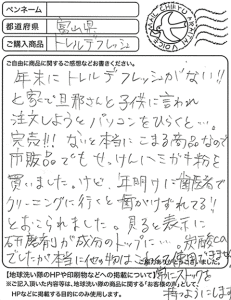 ペンネーム
都道府県 富山県
ご購入商品 トレルデフレッシュ
ご自由に商品に関するご感想などお書きください。
年末にトレルデフレッシュがない!!
と家で旦那さんと子供に言われ
注文しようとパソコンをひらくと…。
完売!!! ないと本当にこまる商品なので
市販品でもせっけんハミガキ粉を
買いました。けど、年明けに歯医者で
クリーニングに行くと歯がけずれてる!!
とおこられました。見ると表示に
研磨剤が成分のトップに…炭酸Ca
でしたが本当に他の物は
使用してます
【地球洗い隊のHPや印刷物などへの掲載について】 常にストックを
※ご記入頂いた内容等は、地球洗い隊の商品に関する「お客様の声」として、 再ようにします
HPなどに掲載する目的のみ使用します。